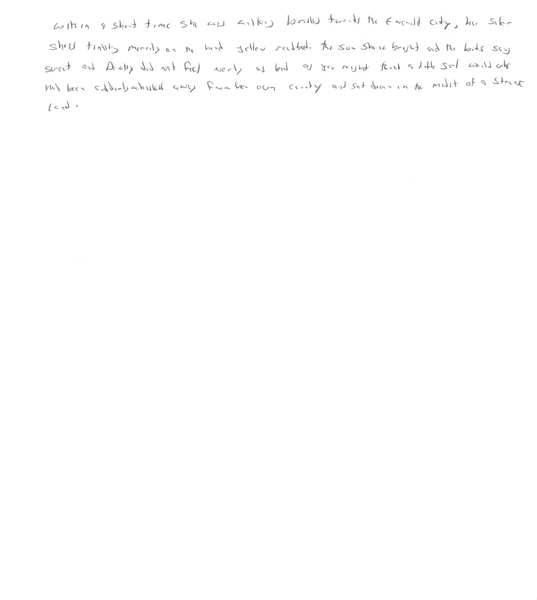 Within a short time she was walking briskly towards the Emerald City, her silver
shoes tinkling merrily on the hard yellow roadbed. The sun shone bright and the birds sang
sweet and Dorothy did not feel nearly as bad as you might think a little girl would who
had been suddenly whisked away from her own country and set down in the midst of a strange
land.